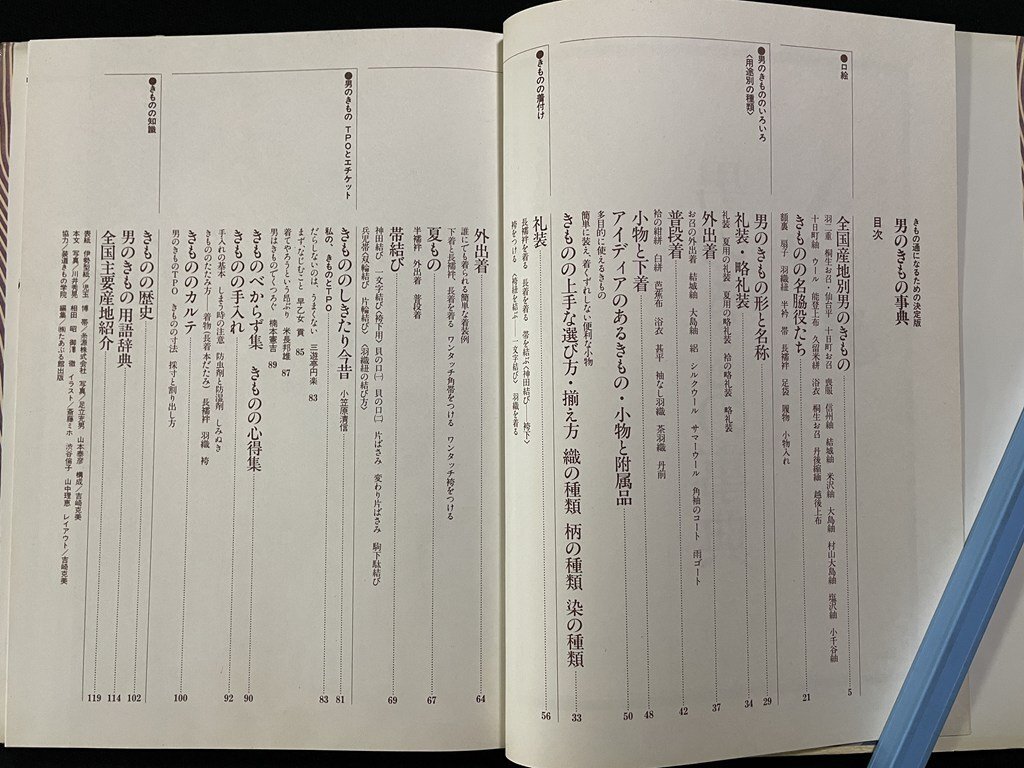 きもの通になるための決定版
男のきもの事典
目次
●口絵
全国産地別男のきもの 5
羽二重 桐生お召・仙台平 十日町お召 喪服 信州紬 結城紬 米沢紬 大島紬 村山大島紬 塩沢紬 小千谷紬
十日町紬 ウール 能登上布 久留米絣 浴衣 桐生お召 丹後縮緬 越後上布
きものの名脇役たち 21
額裏 扇子 羽織紐 半衿 帯 長襦袢 足袋 履物 小物入れ
●男のきもののいろいろ
〈用途別の種類〉
男のきもの形と名称 29
礼装・略礼装 34
礼装 夏用の礼装 夏用の略礼装 袷の略礼装 略礼装
外出着 37
お召の外出着 結城紬 大島紬 絽 シルクウール サマーウール 角袖のコート 雨ゴート
普段着 42
袷の紺絣 白絣 芭蕉布 浴衣 甚平 袖なし羽織 茶羽織 丹前
小物と下着 48
アイディアのあるきもの・小物と附属品 50
多目的に使えるきもの
簡単に装え、着くずれしない便利な小物
きものの上手な選び方・揃え方 織の種類 柄の種類 染の種類 33
●きものの着付け
礼装 56
長襦袢を着る 長着を着る 帯を結ぶ〈神田結び——袴下〉
袴をつける 〈袴紐を結ぶ——一文字結び〉 羽織を着る
外出着 64
誰にでも着られる簡単な着装例
下着と長襦袢、長着を着る ワンタッチ角帯をつける ワンタッチ袴をつける
夏もの 67
半襦袢 外出着 普段着
帯結び 69
神田結び 一文字結び〈袴下用〉 貝の口㈠ 貝の口㈡ 片ばさみ 変わり片ばさみ 駒下駄結び
兵児帯〈双輪結び 片輪結び〉〈羽織紐の結び方〉
●男のきもの TPOとエチケット
きもののしきたり今昔 小笠原清信 81
私の、きもののとTPO 83
だらしないのは、うまくない 三遊亭円楽 83
まず、なじむこと 早乙女 貢 85
着てやろうという昂ぶり 米長邦雄 87
男はきものでくつろぐ 楠本憲吉 89
きものべからず集 きものの心得集 90
きものの手入れ 92
手入れの基本 しまう時の注意 防虫剤と防湿剤 しみぬき
きもののたたみ方——着物(長着本だたみ) 長襦袢 羽織 袴
きもののカルテ 100
男のきものTPO きものの寸法 採寸と割り出し方
●きものの知識
きものの歴史 102
男のきもの用語辞典 114
全国主要産地紹介 119